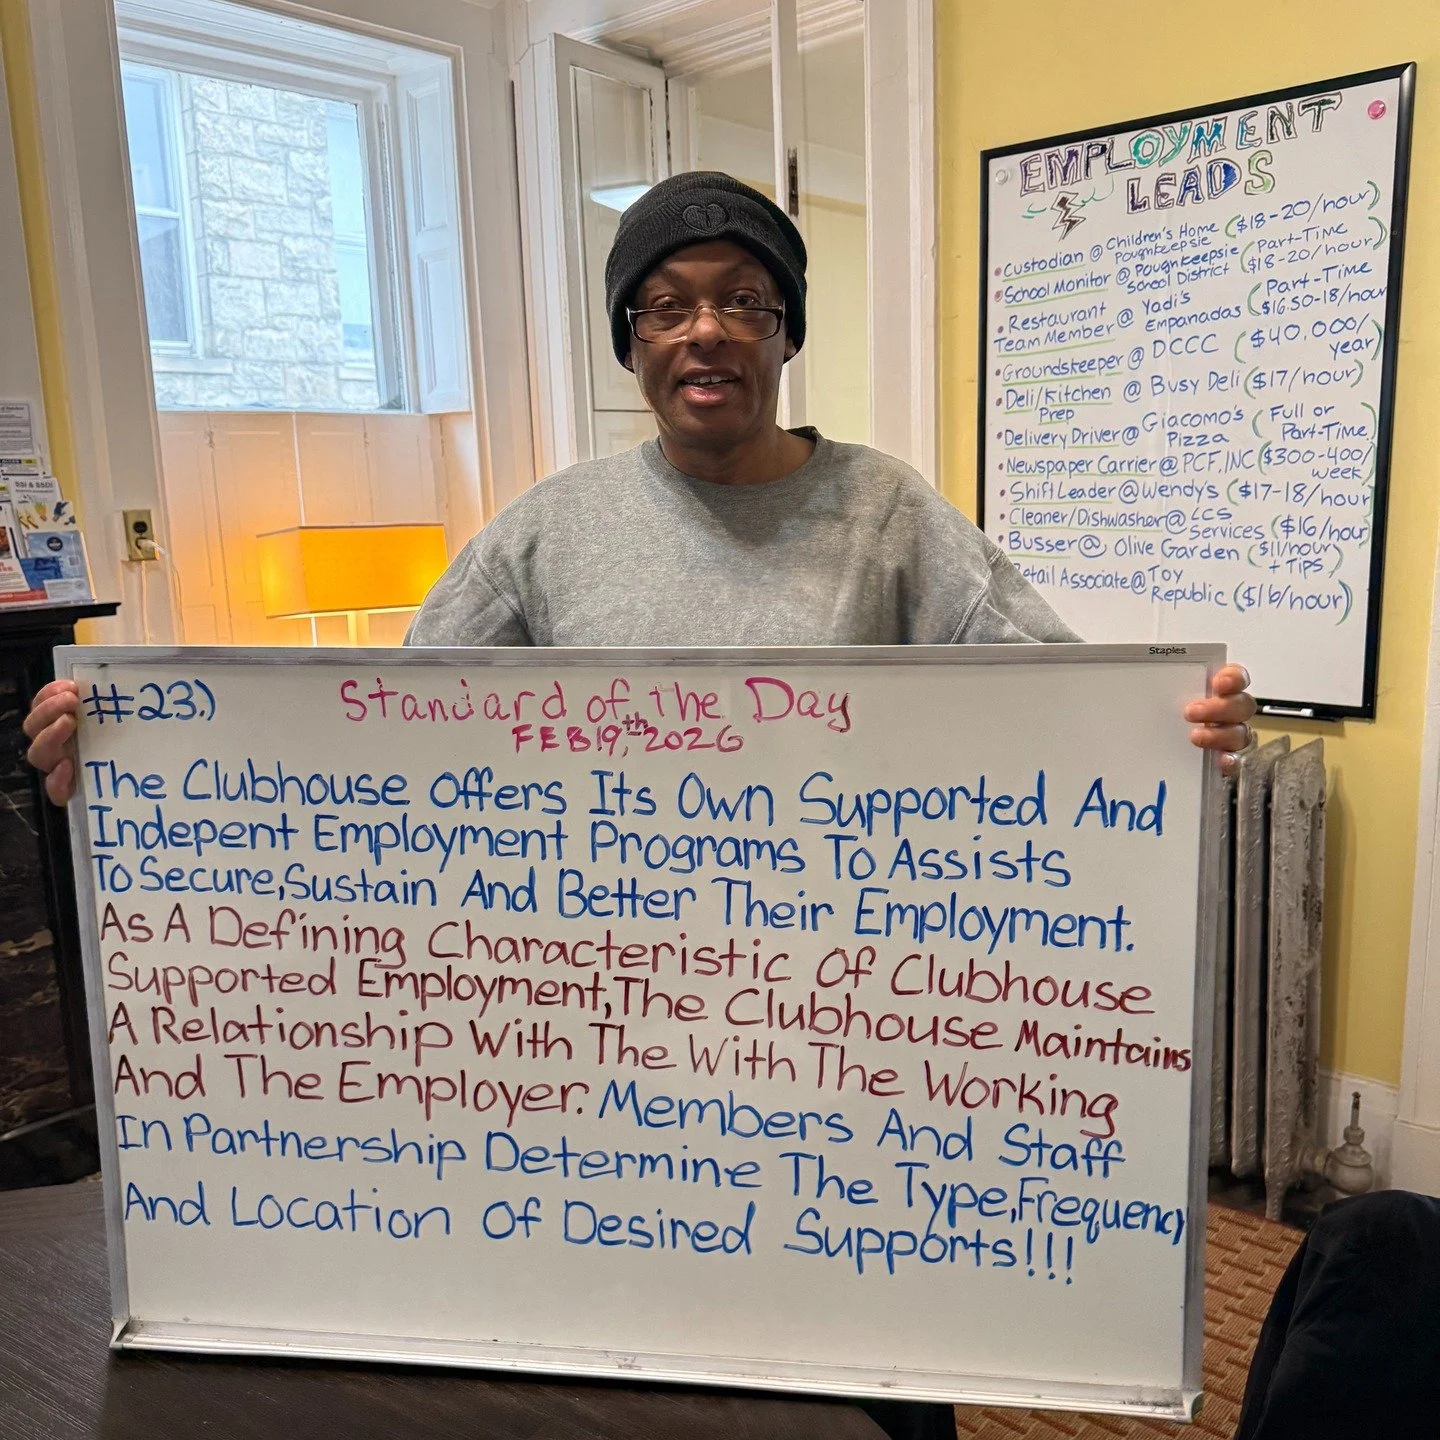 #23.) Standard of the Day
FEB 19,th 2026
The Clubhouse Offers Its Own Supported And
Indepent Employment Programs To Assists
To Secure, Sustain And Better Their Employment.
As A Defining Characteristic Of Clubhouse
Supported Employment, The Clubhouse Maintains
A Relationship With The With The Working
And The Employer. Members And Staff
In Partnership Determine The Type, Frequency
And Location Of Desired Supports!!!
Staples
EMPLOYMENT
LEADS
• Custodian @ Children's Home Poughkeepsie ($18-20/hour)
• School Monitor @ Poughkeepsie School District (Part-Time $18-20/hour)
• Restaurant Team Member @ Yadi's Empanadas (Part-Time $16.50-18/hour
• Groundskeeper @ DCCC ($40,000/year)
• Deli/Kitchen Prep @ Busy Deli ($17/hour)
• Delivery Driver @ Giacomo's Pizza (Full or Part-Time)
• Newspaper Carrier @ PCF, INC ($300-400/week)
• Shift Leader @ Wendy's ($17-18/hour)
• Cleaner/Dishwasher @ LCS Services ($16/hour)
• Busser @ Olive Garden ($11/hour + TIPS)
Retail Associate @ Toy Republic ($16/hour)
SSI & SSDI